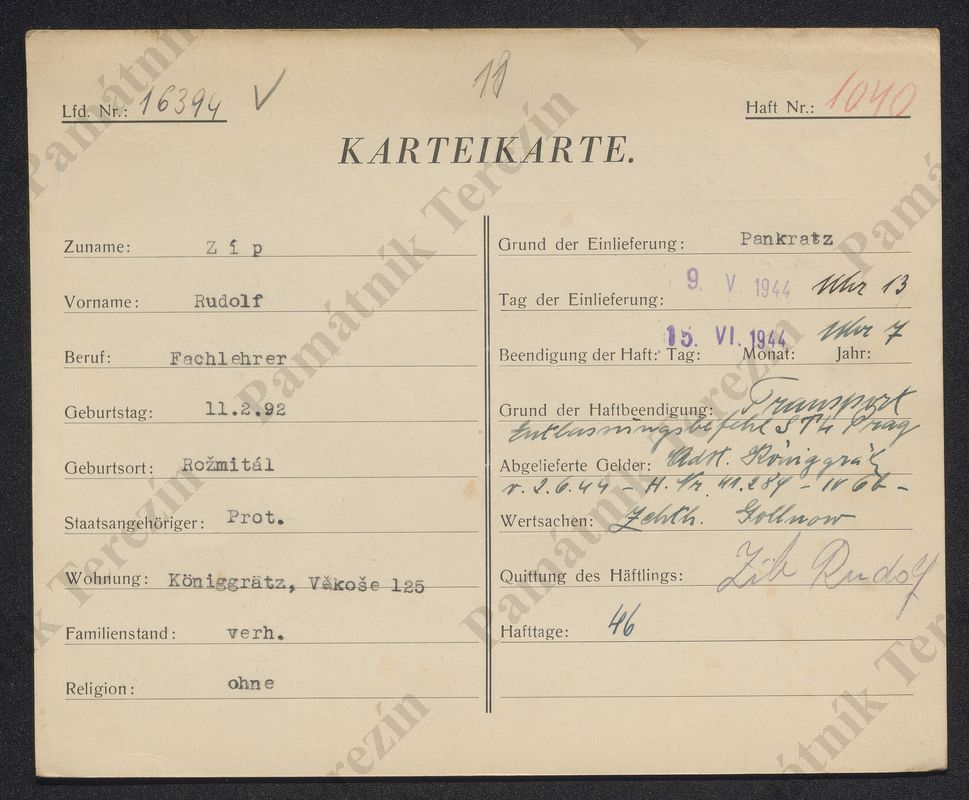 18
Lfd. Nr.: 16394 V
Haft Nr.: 1040
KARTEIKARTE.
Zuname: Zíp
Vorname: Rudolf
Beruf: Fachlehrer
Geburtstag: 11.2.92
Geburtsort: Rožmitál
Staatsangehöriger: Prot.
Wohnung: Königgrätz, Věkoše 125
Familienstand: verh.
Religion: ohne
Grund der Einlieferung: Pankratz
Tag der Einlieferung: 9. V. 1944 Uhr 13
Beendigung der Haft: Tag: 15. Monat: VI. Jahr: 1944 Uhr 7
Grund der Haftbeendigung: Transport
Entlassungsbefehl STL Prag
Abgelieferte Gelder: Adst. Königgrätz
v. 2.6.44 - H. Nr. 41.284 - IV 6b -
Wertsachen: Zchth. Gollnow
Quittung des Häftlings: Zíp Rudolf
Hafttage: 46
Památník Terezín